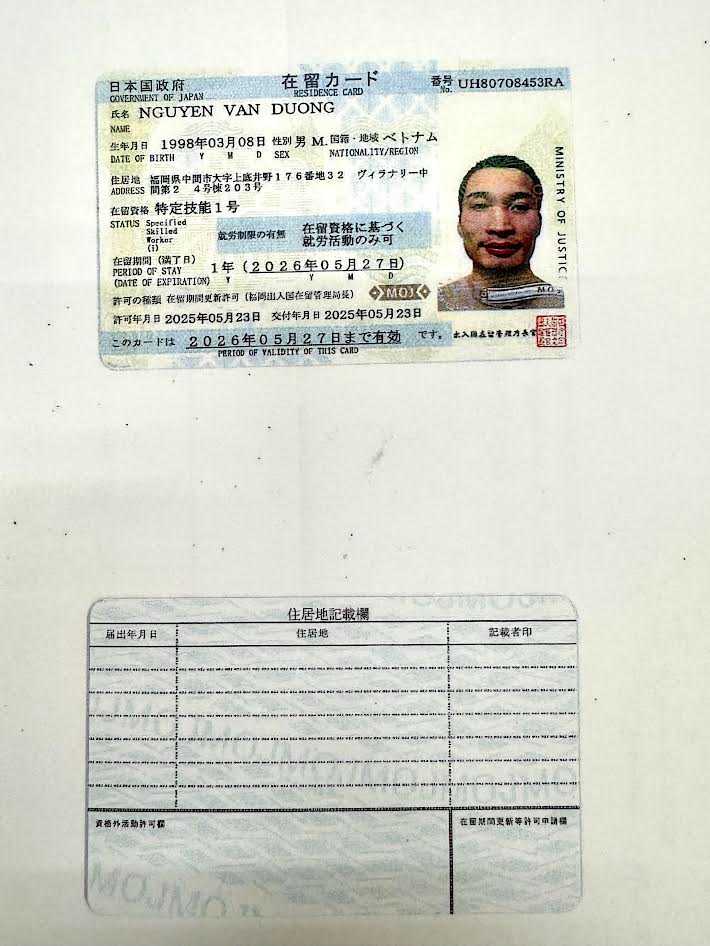 日本国政府 在留カード 番号 UH80708453RA
GOVERNMENT OF JAPAN RESIDENCE CARD No.
氏名 NGUYEN VAN DUONG
NAME
生年月日 1998年03月08日 性別 男 M. 国籍・地域 ベトナム
DATE OF BIRTH Y M D SEX NATIONALITY/REGION
住居地 福岡県中間市大字上底井野176番地32 ヴィラナリー中
ADDRESS 間第2 4号棟203号
在留資格 特定技能1号
STATUS Specified
Skilled
Worker
(i)
就労制限の有無 在留資格に基づく
就労活動のみ可
在留期間 (満了日)
PERIOD OF STAY 1年 (2026年05月27日)
(DATE OF EXPIRATION) Y Y M D
許可の種類 在留期間更新許可 (福岡出入国在留管理局長) MOJ
許可年月日 2025年05月23日 交付年月日 2025年05月23日
このカードは 2026年05月27日まで有効 です。
PERIOD OF VALIDITY OF THIS CARD
出入国在留管理庁長官
MINISTRY OF JUSTICE
住居地記載欄
届出年月日 住居地 記載者印
資格外活動許可欄 在留期間更新等許可申請欄